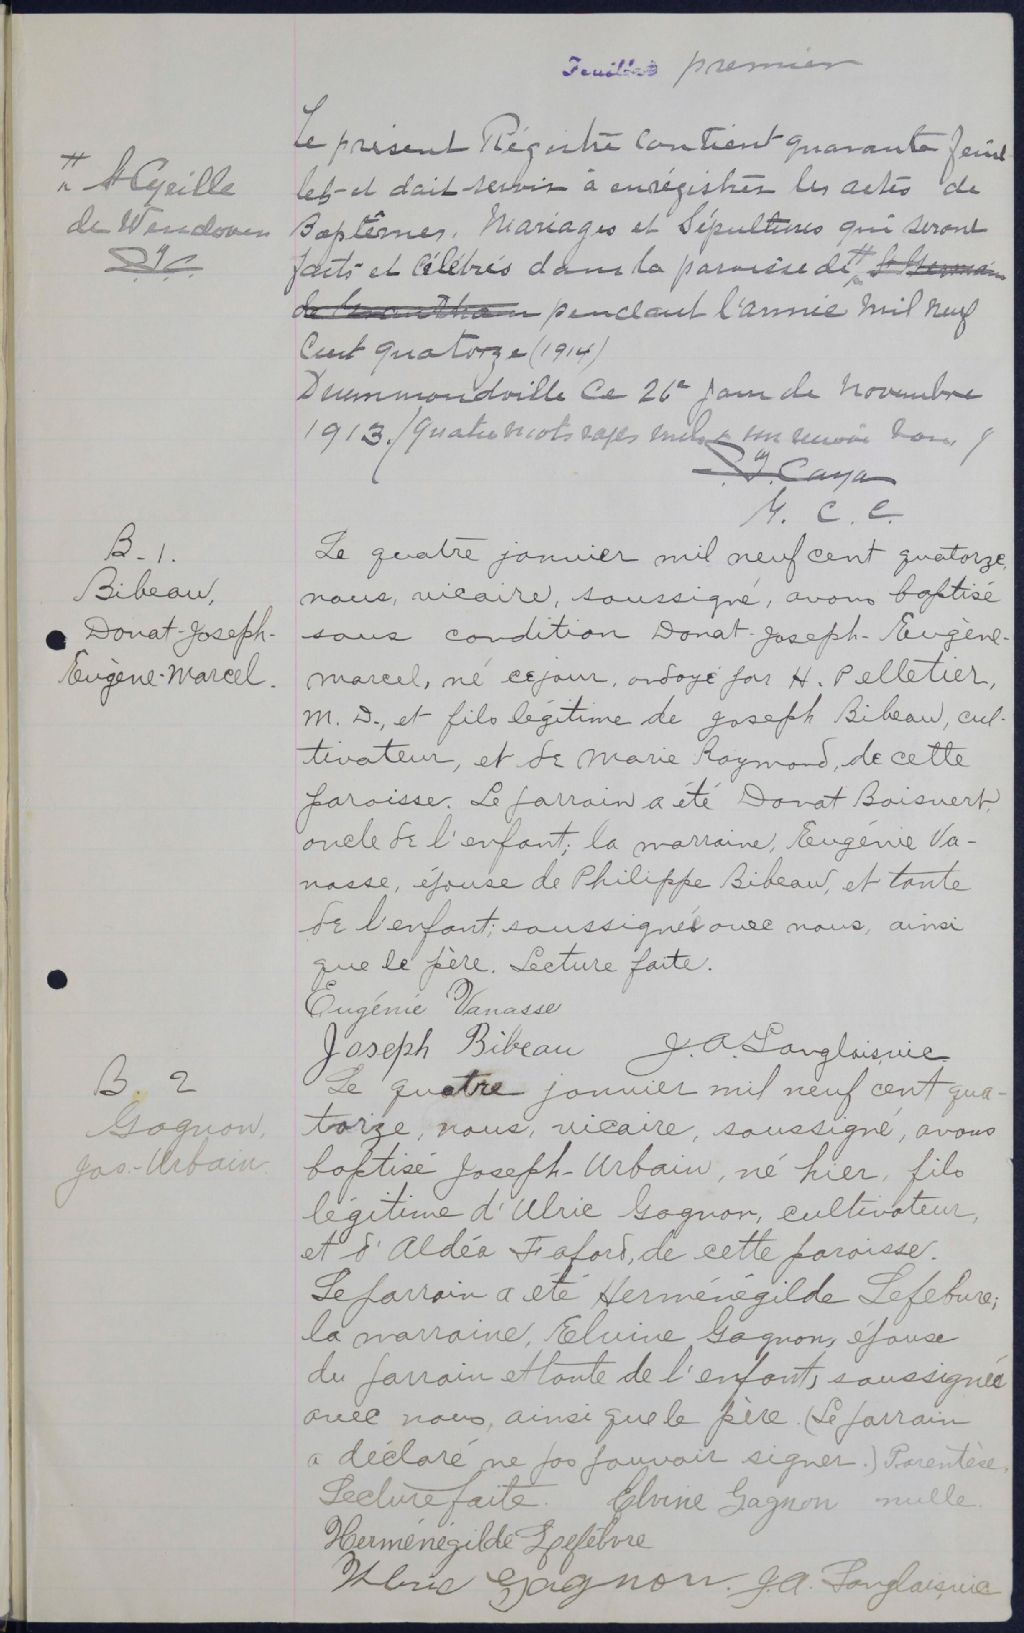 Feuillet premier
Le présent Régistre contient quarante feuil
let et doit servir à enrégistrer les actes de
Baptêmes, Mariages et Sépultures qui seront
faits et célébrés dans la paroisse de # St Germain
de Grantham pendant l'année mil neuf
cent quatorze (1914)
# St Cyrille
de Wendover
Drummondville ce 26e jour de Novembre
1913. (Quatre mots rayés nuls & un renvoi bon
J. Caya
G. C. C.
B-1.
Bibeau,
Donat-Joseph-
Eugène-Marcel.
Le quatre janvier mil neuf cent quatorze,
nous, vicaire, soussigné, avons baptisé
sous condition Donat-Joseph-Eugène-
Marcel, né ce jour, ondoyé par H. Pelletier,
M. D., et fils légitime de Joseph Bibeau, cul-
tivateur, et de Marie Raymond, de cette
paroisse. Le parrain a été Donat Boisvert,
oncle de l'enfant; la marraine, Eugénie Va-
nasse, épouse de Philippe Bibeau, et tante
de l'enfant; soussignée avec nous, ainsi
que le père. Lecture faite.
Eugénie Vanasse
Joseph Bibeau J. A. Langlois, vic.
B. 2
Gagnon,
Jos.-Urbain.
Le quatre janvier mil neuf cent qua-
torze, nous, vicaire, soussigné, avons
baptisé Joseph-Urbain, né hier, fils
légitime d'Ulric Gagnon, cultivateur,
et d'Aldéa Fafard, de cette paroisse.
Le parrain a été Herménégilde Lefebvre;
la marraine, Elvine Gagnon, épouse
du parrain et tante de l'enfant, soussignée
avec nous, ainsi que le père. (Le parrain
a déclaré ne pas pouvoir signer.) Parentèse
Lecture faite. Elvine Gagnon nulle.
Herménégilde Lefebvre
Ulric Gagnon. J. A. Langlois, vic